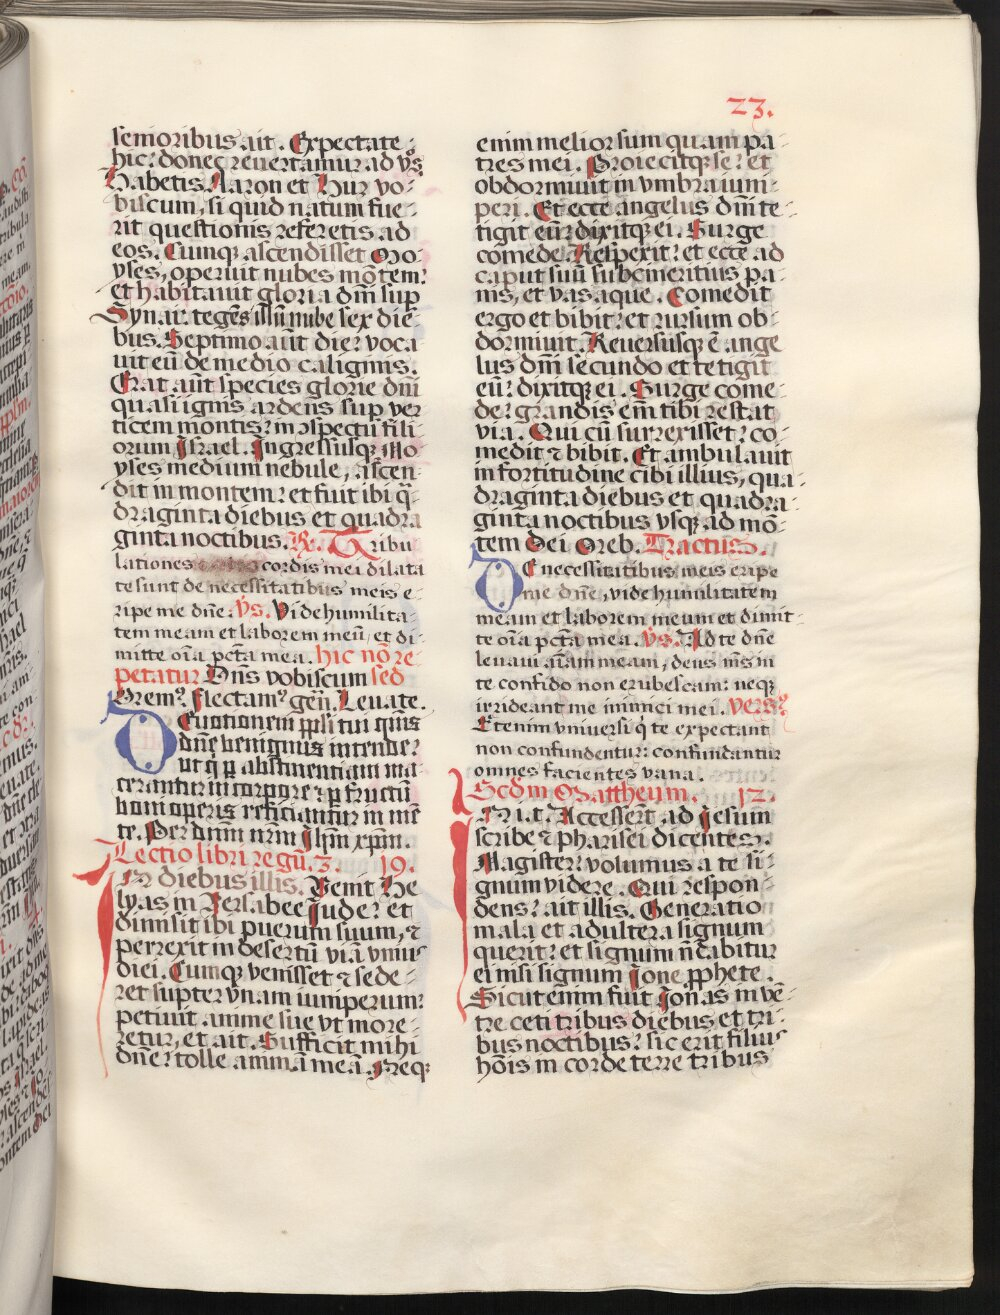 23.
semoribus ait. Expectate
hic: donec revertamur ad vos
Habetis Aaron et Hur vo-
biscum, si quid natum fue-
rit questionis referetis ad
eos. Cumq; ascendisset Mo-
yses, operuit nubes montem:
et habitavit gloria dni sup
Synai: teges illu nube sex die-
bus. Septimo aut die: voca
vit eu de medio caliginis.
Erat aut species glorie dni
quasi ignis ardens sup ver
ticem montis: in ɔspectu fili-
orum Israel. Ingressusq; Mo-
yses medium nebule, ascen-
dit in montem: et fuit ibi q̄-
draginta diebus et quadra
ginta noctibus. R. Tribu
lationes cordis mei dilata
te sunt de necessitatibus meis e-
ripe me dne. Vs. Vide humilita-
tem meam et laborem meu, et di-
mitte oia pcta mea. hic no re-
petatur Dns vobiscum sed
Orem9. Flectam9 gen. Levate.
Devotionem ppli tui quis
dne benignus intende:
ut q p abstinentiam ma-
cerantur in corpore: p fructu
boni operis reficiantur in me
te. Per dnm nrm Ihm xpm.
Lectio libri regu. 3. 19.
In diebus illis. Venit He
lyas in Bersabee Iude: et
dimisit ibi puerum suum, et
perrexit in desertu via unius
diei. Cumq; venisset et sede-
ret supter unam iumperum:
petivit anime sue vt more-
retur, et ait. Sufficit mihi
dne: tolle anima mea. Neq;
enim melior sum quam pa-
tres mei. Proiecitq; se: et
obdormivit in vmbra iuni-
peri. Et ecce angelus dni te-
tigit eu: dixitq; ei. Surge
comede. Respexit: et ecce ad
caput suu subcineritius pa-
nis, et vas aque. Comedit
ergo et bibit: et rursum ob-
dormivit. Reversusq; e ange
lus dni secundo et tetigit
eu: dixitq; ei. Surge come-
de: grandis em tibi restat
via. Qui cu surrexisset: co-
medit et bibit. Et ambulavit
in fortitudine cibi illius, qua-
draginta diebus et quadra-
ginta noctibus vsq; ad mo-
tem Dei Oreb. Tractus.
De necessitatibus meis eripe
me dne, vide humilitatem
meam et laborem meum et dimit-
te oia pcta mea. Vs. Ad te dne
levavi aiam meam, deus ms in
te confido non erubescam: neq;
irrideant me inimici mei. Vers9
Etenim vniversi q te expectant
non confundentur: confundantur
omnes facientes vana.
Scdm Mattheum. 12.
In i. t. Accessert ad Iesum
scribe et pharisei dicentes.
Magister: volumus a te si-
gnum videre. Qui respon-
dens: ait illis. Generatio
mala et adultera signum
querit: et signum n dabitur
ei nisi signum Ione pphete.
Sicut enim fuit Ionas in ve-
tre ceti tribus diebus et tri-
bus noctibus: sic erit filius
hois in corde terre tribus